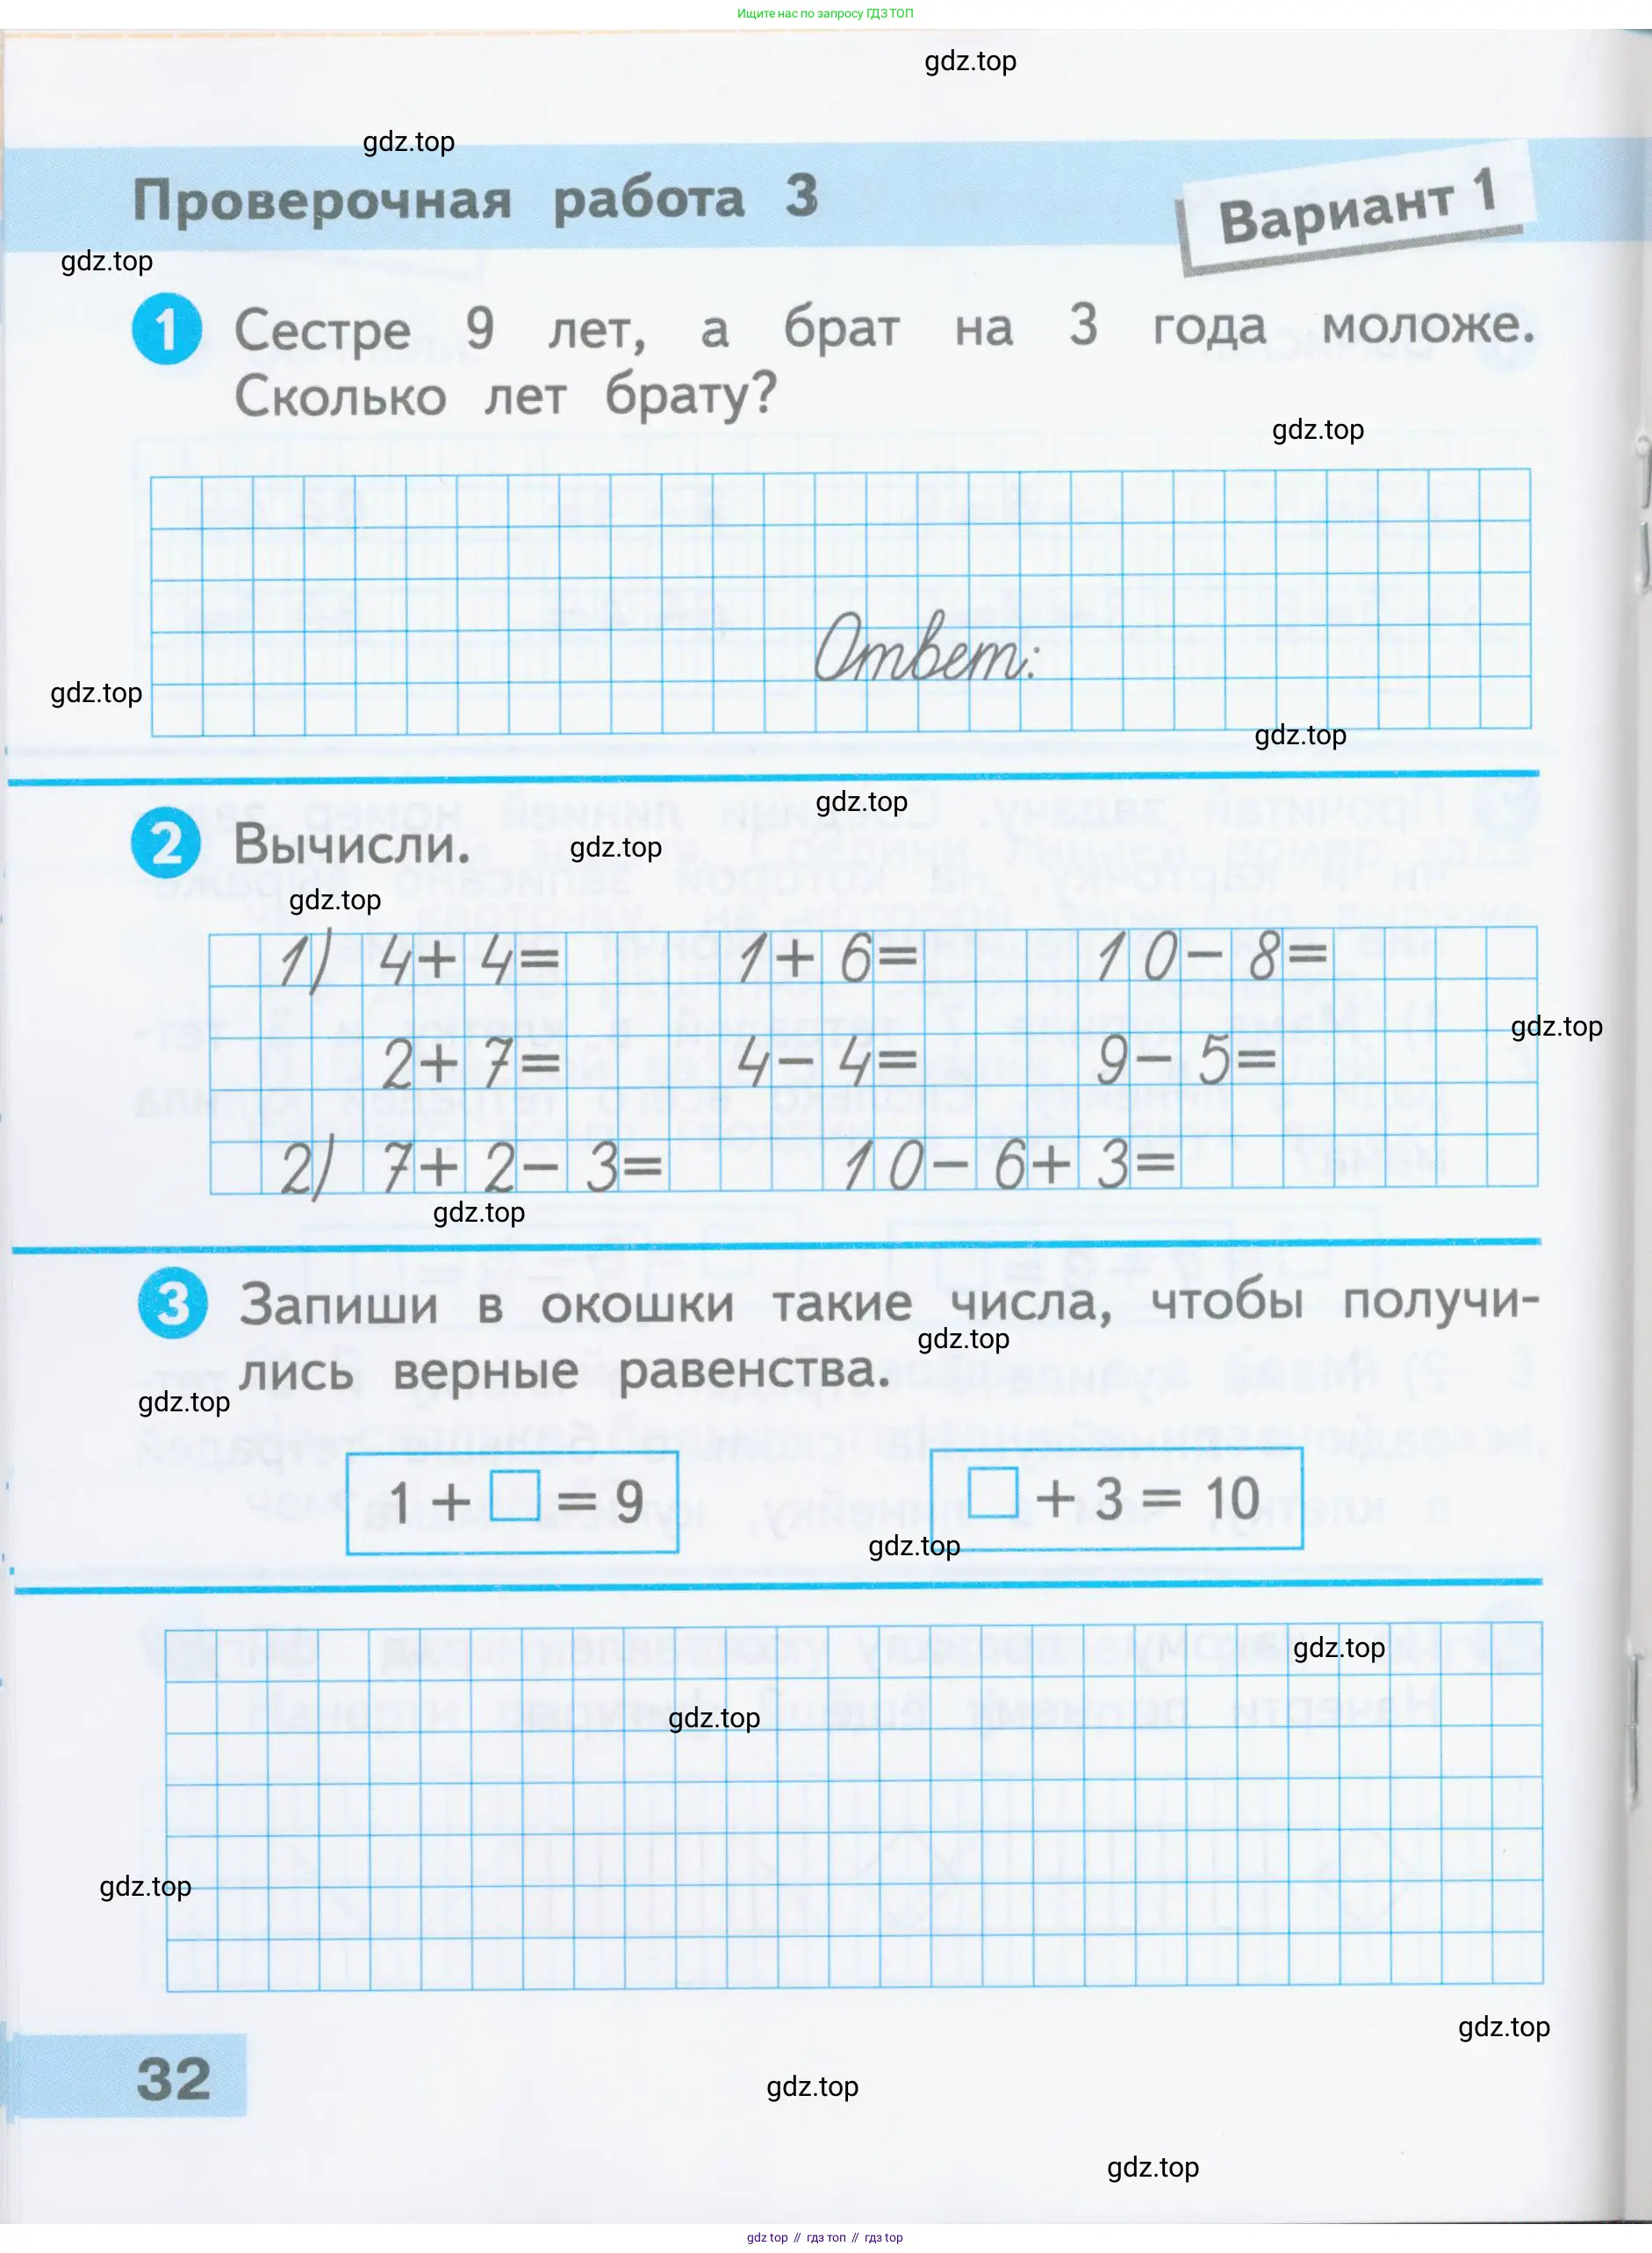 Ищите нас по запросу ГДЗ ТОП
gdz.top
gdz.top
Проверочная работа 3
Вариант 1
gdz.top
1 Сестре 9 лет, а брат на 3 года моложе.
Сколько лет брату?
gdz.top
Ответ:
gdz.top
gdz.top
gdz.top
2 Вычисли.
gdz.top
gdz.top
1) 4+4= 1+6= 10-8=
gdz.top
2+7= 4-4= 9-5=
2) 7+2-3= 10-6+3=
gdz.top
3 Запиши в окошки такие числа, чтобы получи-
gdz.top
лись верные равенства.
gdz.top
1 + □ = 9 □ + 3 = 10
gdz.top
gdz.top
gdz.top
gdz.top
gdz.top
32
gdz.top
gdz.top
gdz top // гдз топ // гдз top